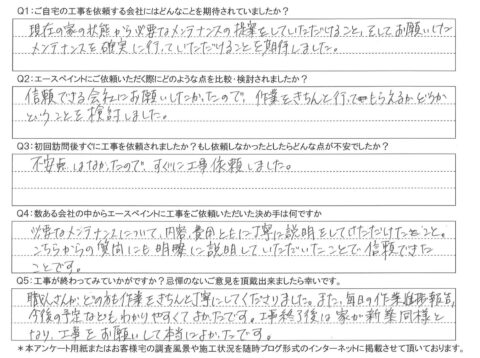 Q1：ご自宅の工事を依頼する会社にはどんなことを期待されていましたか？
現在の家の状態から必要なメンテナンスの提案をしていただけること、そしてお願いした
メンテナンスを確実に行っていただけることを期待しました。
Q2：エースペイントにご依頼いただく際にどのような点を比較・検討されましたか？
信頼できる会社にお願いしたかったので、作業をきちんと行ってもらえるかどうか
ということを検討しました。
Q3：初回訪問後すぐに工事を依頼されましたか？もし依頼しなかったとしたらどんな点が不安でしたか？
不安点はなかったので、すぐに工事依頼しました。
Q4：数ある会社の中からエースペイントに工事をご依頼いただいた決め手は何ですか
必要なメンテナンスについて、内容、費用ともに丁寧に説明をしていただけたこと。
こちらからの質問にも明瞭に説明していただいたことで信頼できた
ことです。
Q5：工事が終わってみていかがですか？忌憚のないご意見を頂戴出来ましたら幸いです。
職人さんがどの方も作業をきちんと丁寧にしてくださりました。また、毎日の作業進捗報告、
今後の予定などもわかりやすくてよかったです。工事終了後は家が新築同様と
なり、工事をお願いして本当によかったです。
＊本アンケート用紙またはお客様宅の調査風景や施工状況を随時ブログ形式のインターネットに掲載させて頂いております。